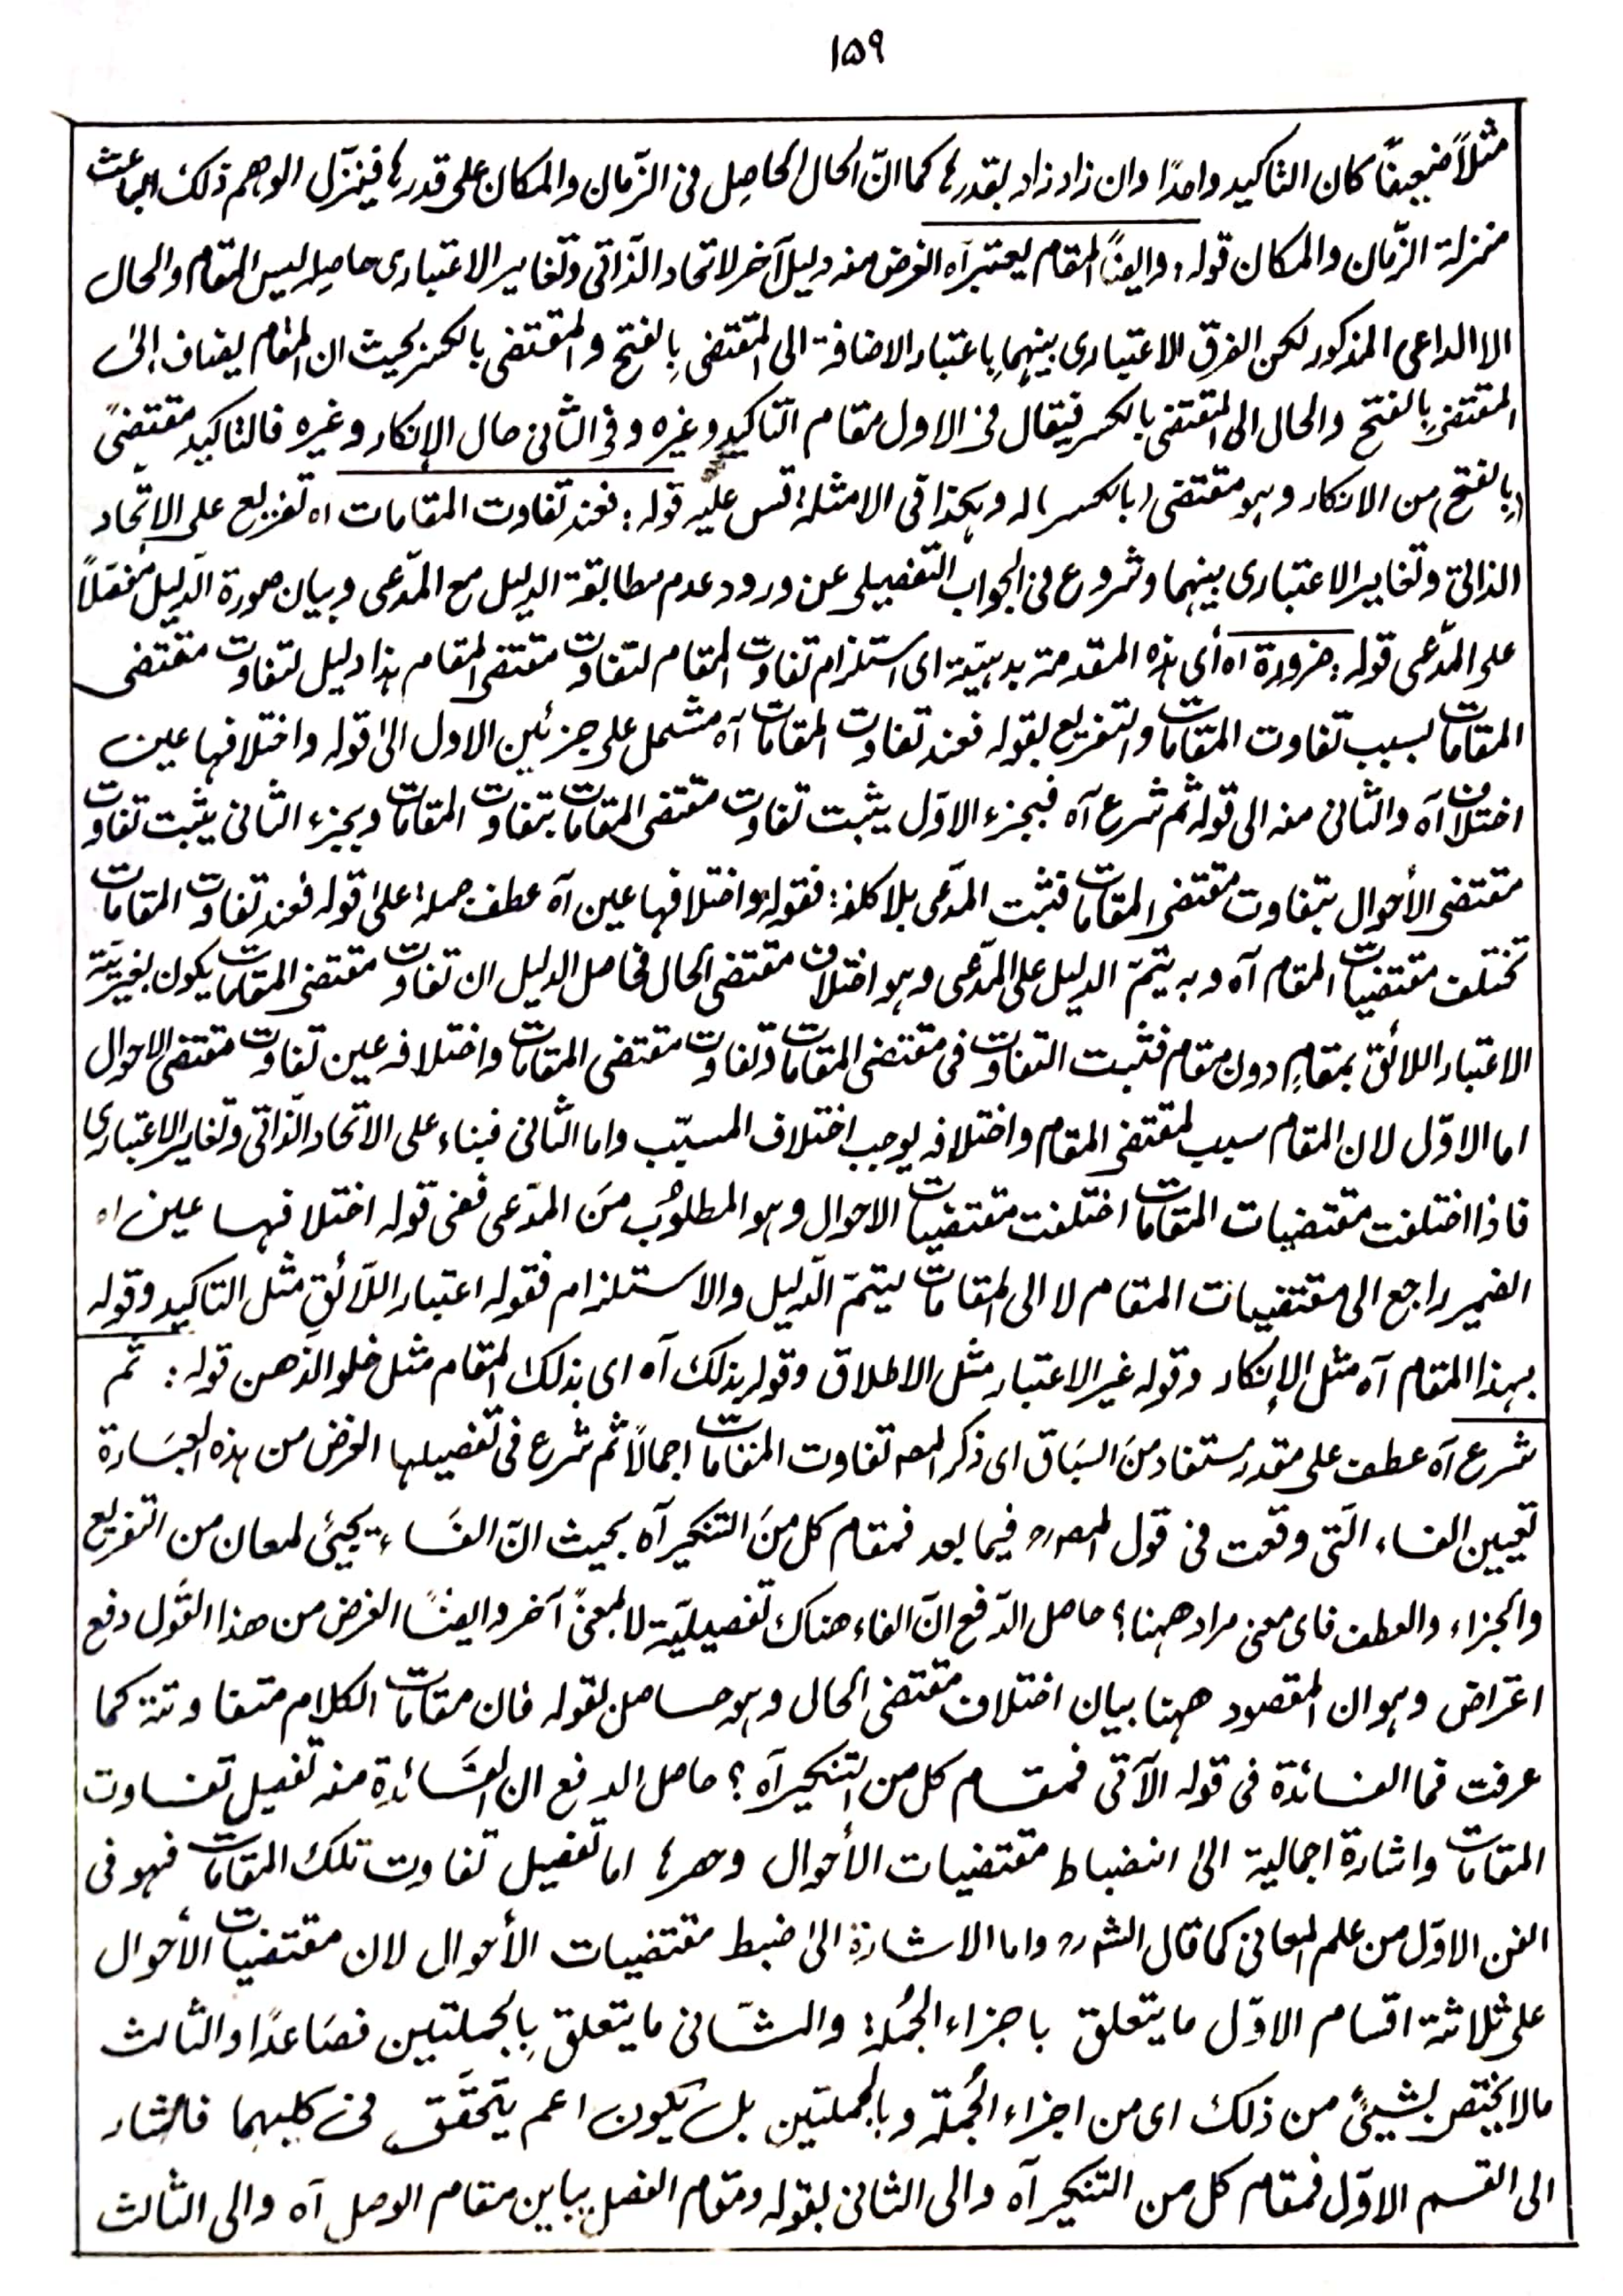 ۱۵۹
مثلاً ضعيفًا كان التاكيد واحدًا وان زاد زاد بقدرها كما انّ الحال الحاصل فى الزّمان والمكان على قدرها فينزّل الوهم ذلك الباعث
منزلة الزّمان والمكان قوله: وايضًا المقام يعتبر آه الغرض منه دليل آخر لاتحاد الذّاتى وتغاير الاعتبارى حاصله ليس المقام والحال
الا الداعى المذكور لكن الفرق الاعتبارى بينهما باعتبار الاضافة الى المقتضى بالفتح و المقتضى بالكسر بحيث ان المقام يضاف الى
المقتضى بالفتح والحال الى المقتضى بالكسر فيقال فى الاول مقام التاكيد وغيره وفى الثانى حال الإنكار وغيره فالتاكيد مقتضىً
(بالفتح) من الانكار وهو مقتضى (بالكسر) له وهكذا فى الامثلة قس عليه قوله: فعند تفاوت المقامات اه تفريع على الاتّحاد
الذاتى وتغاير الاعتبارى بينهما وشروع فى الجواب التفصيلى عن ورود عدم مطابقة الدليل مع المدّعى وبيان صورة الدّليل مفصّلاً
على المدّعى قوله: ضرورة اه أى هذه المقدمة بديهيّة اى استلزام تفاوت المقام لتفاوت مقتضى المقام هذا دليل لتفاوت مقتضى
المقامات بسبب تفاوت المقامات والتفريع بقوله فعند تفاوت المقامات آه مشتمل على جزئين الاول الى قوله واختلافها عين
اختلاف آه والثانى منه الى قوله ثم شرع آه فبجزء الاوّل يثبت تفاوت مقتضى المقامات بتفاوت المقامات وبجزء الثانى يثبت تفاوت
مقتضى الأحوال بتفاوت مقتضى المقامات فثبت المدّعى بلا كلفة: فقوله واختلافها عين آه عطف جملة على قوله فعند تفاوت المقامات
تختلف مقتضيات المقام آه وبه يتمّ الدليل على المدّعى وهو اختلاف مقتضى الحال فحاصل الدليل ان تفاوت مقتضى المقامات يكون بغيريّة
الاعتبار اللائق بمقامٍ دون مقام فثبت التفاوت فى مقتضى المقامات وتفاوت مقتضى المقامات واختلافه عين تفاوت مقتضى الاحوال
اما الاوّل لان المقام سبب لمقتضى المقام واختلافه يوجب اختلاف المسبّب واما الثانى فبناء على الاتحاد الذّاتى وتغاير الاعتبارى
فاذا اختلفت مقتضيات المقامات اختلفت مقتضيات الاحوال وهو المطلوب منَ المدّعى ففى قوله اختلافها عين اه
الضمير راجع الى مقتضيات المقام لا الى المقامات ليتمّ الدّليل والاستلزام فقوله اعتبار اللّائق مثل التاكيد وقوله
بهذا المقام آه مثل الإنكار وقوله غير الاعتبار مثل الاطلاق وقوله بذلك آه اى بذلك المقام مثل خلو الذهن قوله: ثم
شرع آه عطف على مقدر ستفاد منَ السبَاق اى ذكر المصه تفاوت المقامات اجمالًا ثم شرع فى تفصيلها الغرض من هذه العبَارة
تعيين الفاء الّتى وقعت فى قول المصررح فيما بعد فمقام كل منَ التنكير آه بحيث انّ الفَاء يجيئ لمعان من التفريع
والجزاء والعطف فاى معنى مراد ههنا؟ حاصل الدّفع انّ الفاء هناك تفصيليّة لا لمعنىً آخر وايضًا الغرض من هذا القول دفع
اعتراض وهو ان المقصود ههنا بيان اختلاف مقتضى الحال وهو حاصل بقوله فان مقامات الكلام متفاوتة كما
عرفت فما الفائدة فى قوله الآتى فمقام كل من التنكير آه؟ حاصل الدفع ان الفَائدة منه تفصيل تفاوت
المقامات واشارة اجمالية الى انضباط مقتضيات الأحوال وحصرها اما تفصيل تفاوت تلك المقامات فهو فى
الفن الاوّل من علم المعانى كما قال الشررح واما الاشارة الى ضبط مقتضيات الأحوال لان مقتضيات الأحوال
على ثلاثة اقسام الاوّل ما يتعلق باجزاء الجُملة والثّانى ما يتعلق بالجملتين فصَاعدًا والثالث
مالا يختص بشيئ من ذلك اى من اجزاء الجُملة وبالجملتين بل يكون اعم يتحقّق فى كليهما فاشار
الى القسم الاوّل فمقام كل من التنكير آه والى الثانى بقوله ومقام الفصل يباين مقام الوصل آه والى الثالث